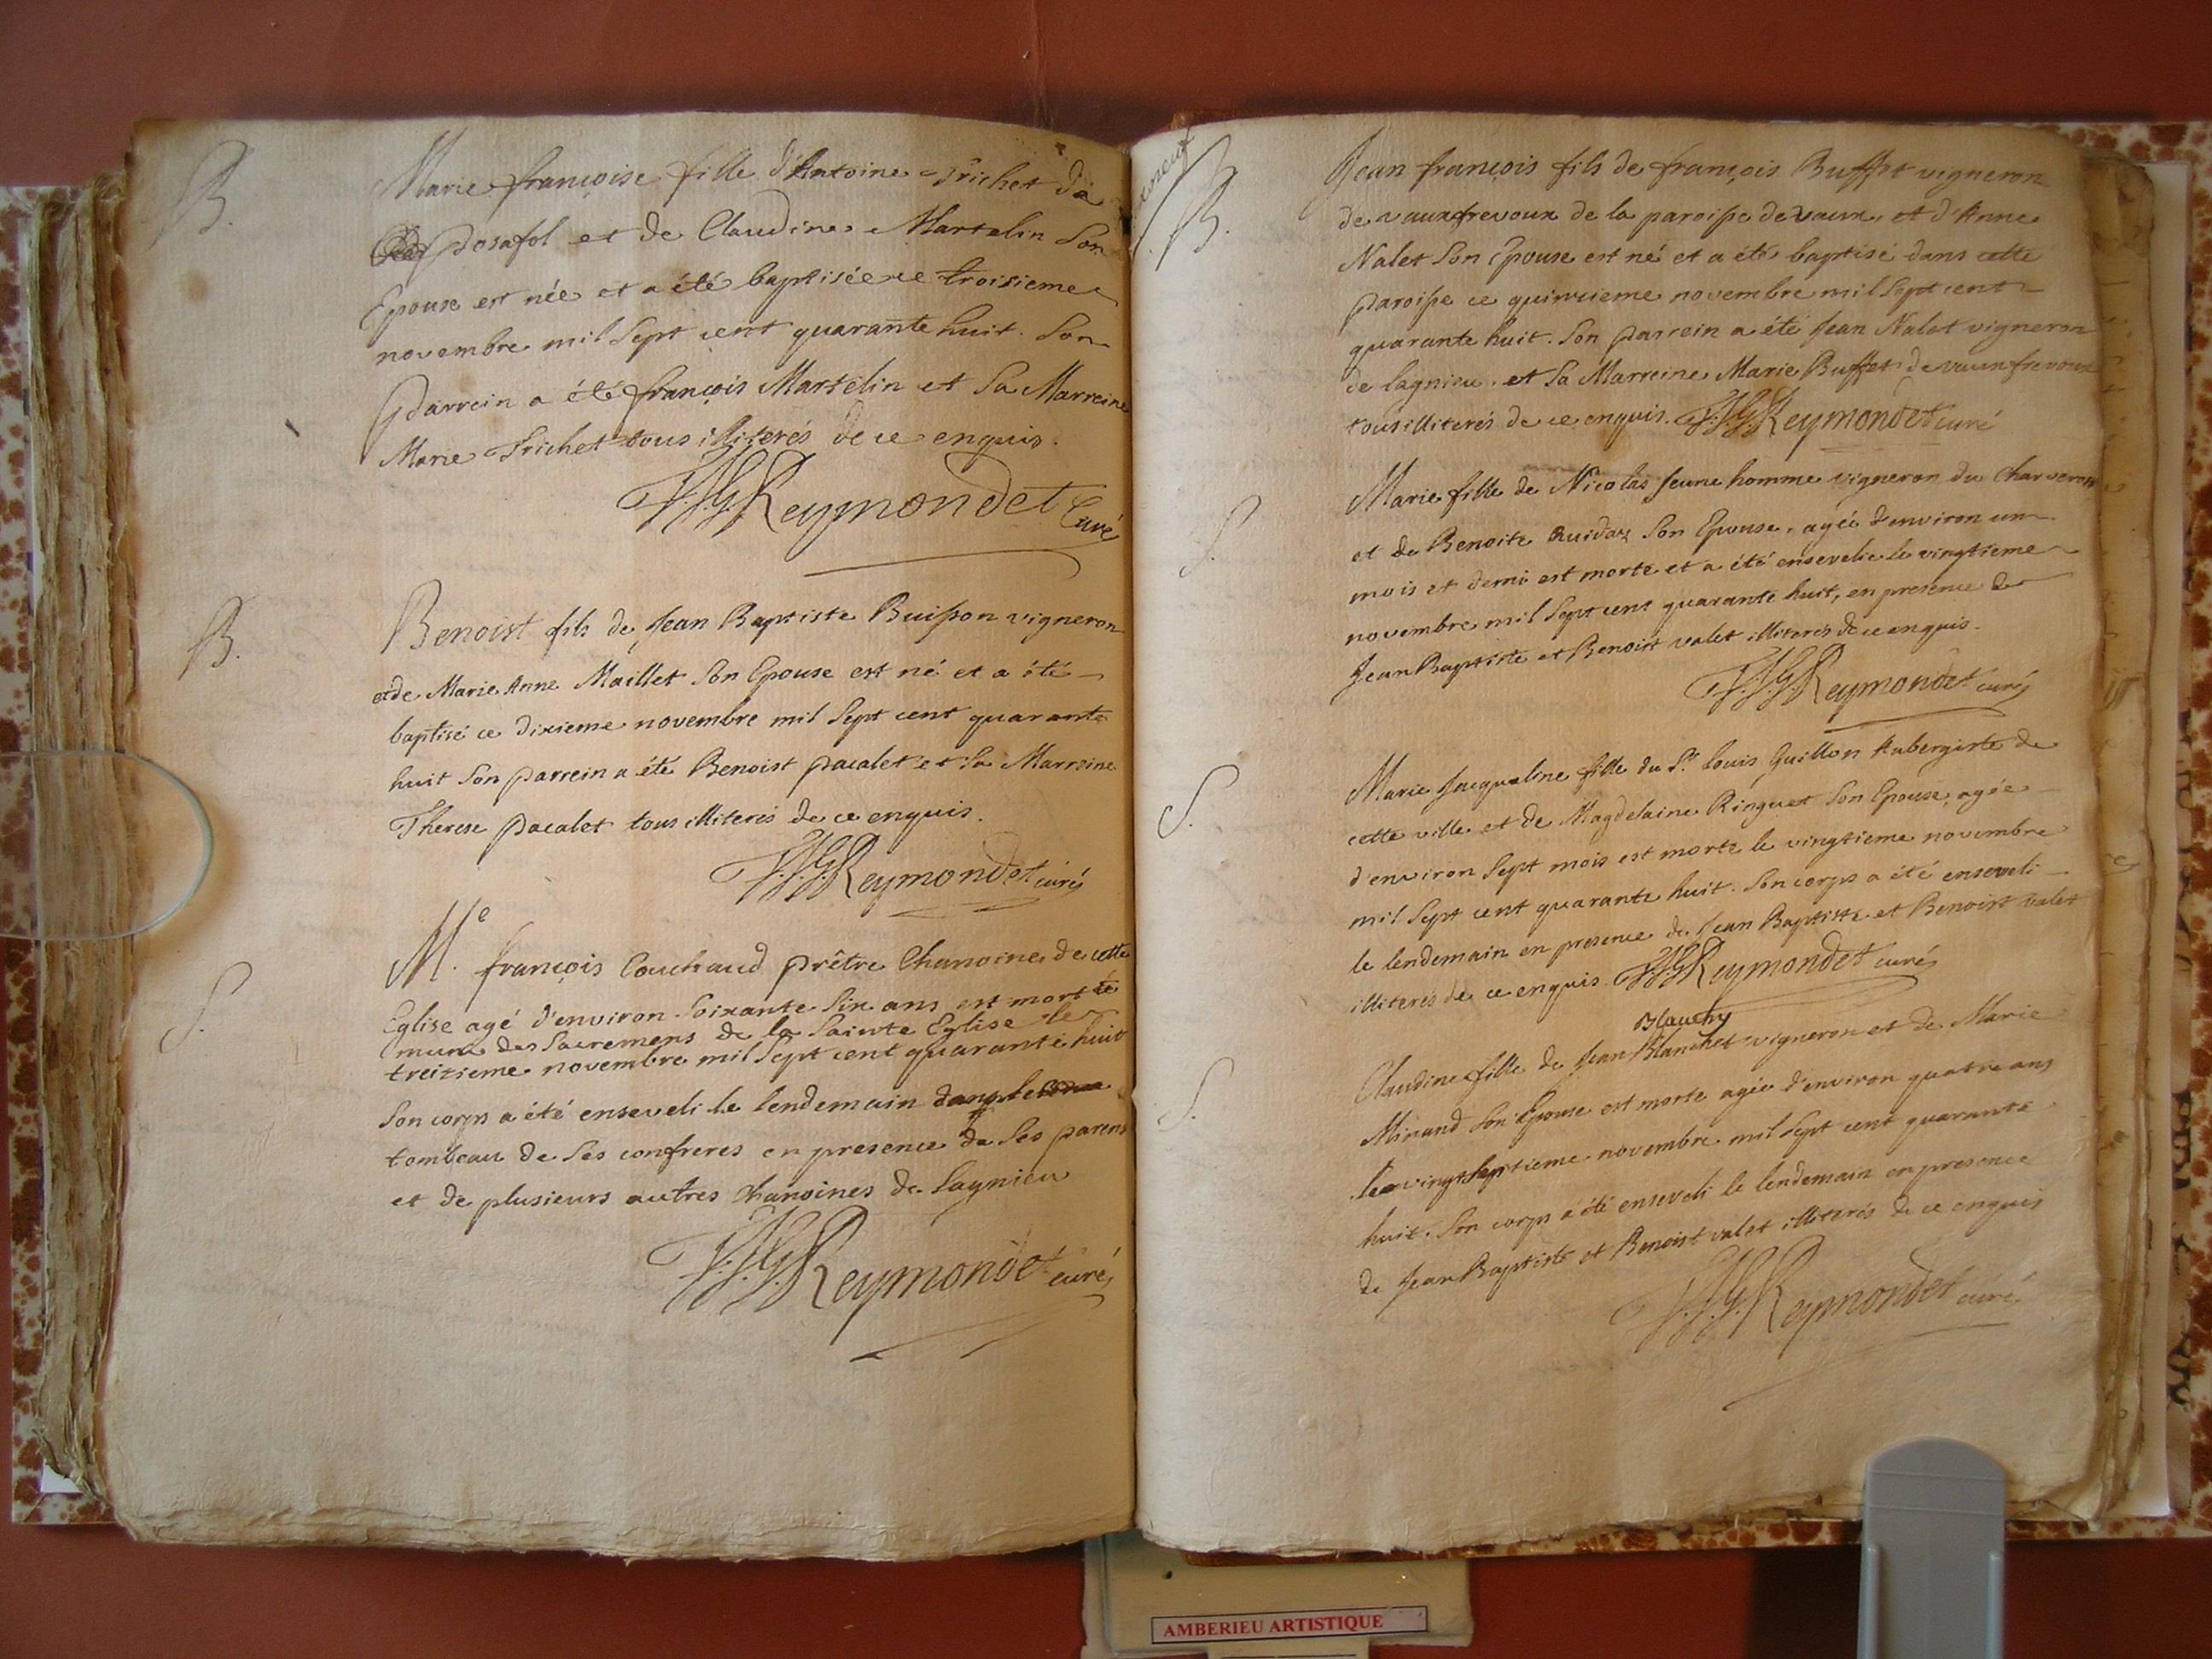 B.
Marie françoise fille d'Antoine Trichet de
posafol et de Claudine Martelin Son
Epouse est née et a été baptisée ce troisieme
novembre mil Sept cent quarante huit. Son
Parrein a été françois Martelin et Sa Marreine
Marie Trichet tous illiterés de ce enquis.
Reymondet Curé
B.
Benoist fils de Jean Baptiste Buisson vigneron
et de Marie Anne Maillet Son Epouse est né et a été
baptisé ce dixieme novembre mil Sept cent quarante
huit Son parrein a été Benoist pacalet et Sa Marreine
Therese pacalet tous illiterés de ce enquis.
Reymondet curé
S.
Me. françois Couchaud prêtre Chanoine de cette
Eglise agé d'environ Soixante Six ans est mort
muni des Sacremens de la Sainte Eglise le
treizieme novembre mil Sept cent quarante huit
Son corps a été enseveli le lendemain dans le
tombeau de Ses confreres en presence de Ses parens
et de plusieurs autres chanoines de Lagnieu
Reymondet curé
B.
Jean françois fils de françois Buffet vigneron
de vaux fevroux de la paroisse de vaux, et d'Anne
Nalet Son Epouse est né et a été baptisé dans cette
paroisse ce quinzieme novembre mil Sept cent
quarante huit. Son parrein a été Jean Nalet vigneron
de lagnieu. et Sa Marreine Marie Buffet de vaux fevroux
tous illiterés de ce enquis. Reymondet curé
S.
Marie fille de Nicolas Jeune homme vigneron du Charveron
et de Benoite Ruidaz Son Epouse, agée d'environ un
mois et demi est morte et a été ensevelie le vingtieme
novembre mil Sept cent quarante huit, en presence de
Jean Baptiste et Benoist valet illiterés de ce enquis.
Reymondet curé
S.
Marie Jacqueline fille du Sr. Louis Guillon Aubergiste de
cette ville et de Magdelaine Ringuet Son Epouse, agée
d'environ Sept mois est morte le vingtieme novembre
mil Sept cent quarante huit. Son corps a été enseveli
le lendemain en presence de Jean Baptiste et Benoist valet
illiterés de ce enquis. Reymondet curé
Blanchy
S.
Claudine fille de Jean Blanchet vigneron et de Marie
Minand Son Epouse est morte agée d'environ quatre ans
le vingt Septieme novembre mil Sept cent quarante
huit. Son corps a été enseveli le lendemain en presence
de Jean Baptiste et Benoist valet illiterés de ce enquis
Reymondet curé
AMBERIEU ARTISTIQUE